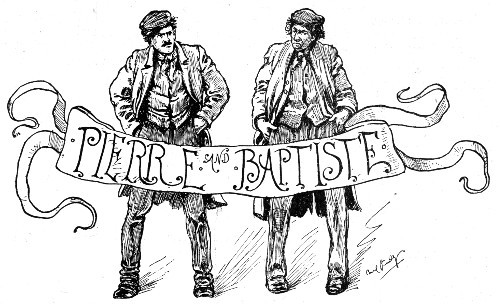 · PIERRE · AND · BAPTISTE ·